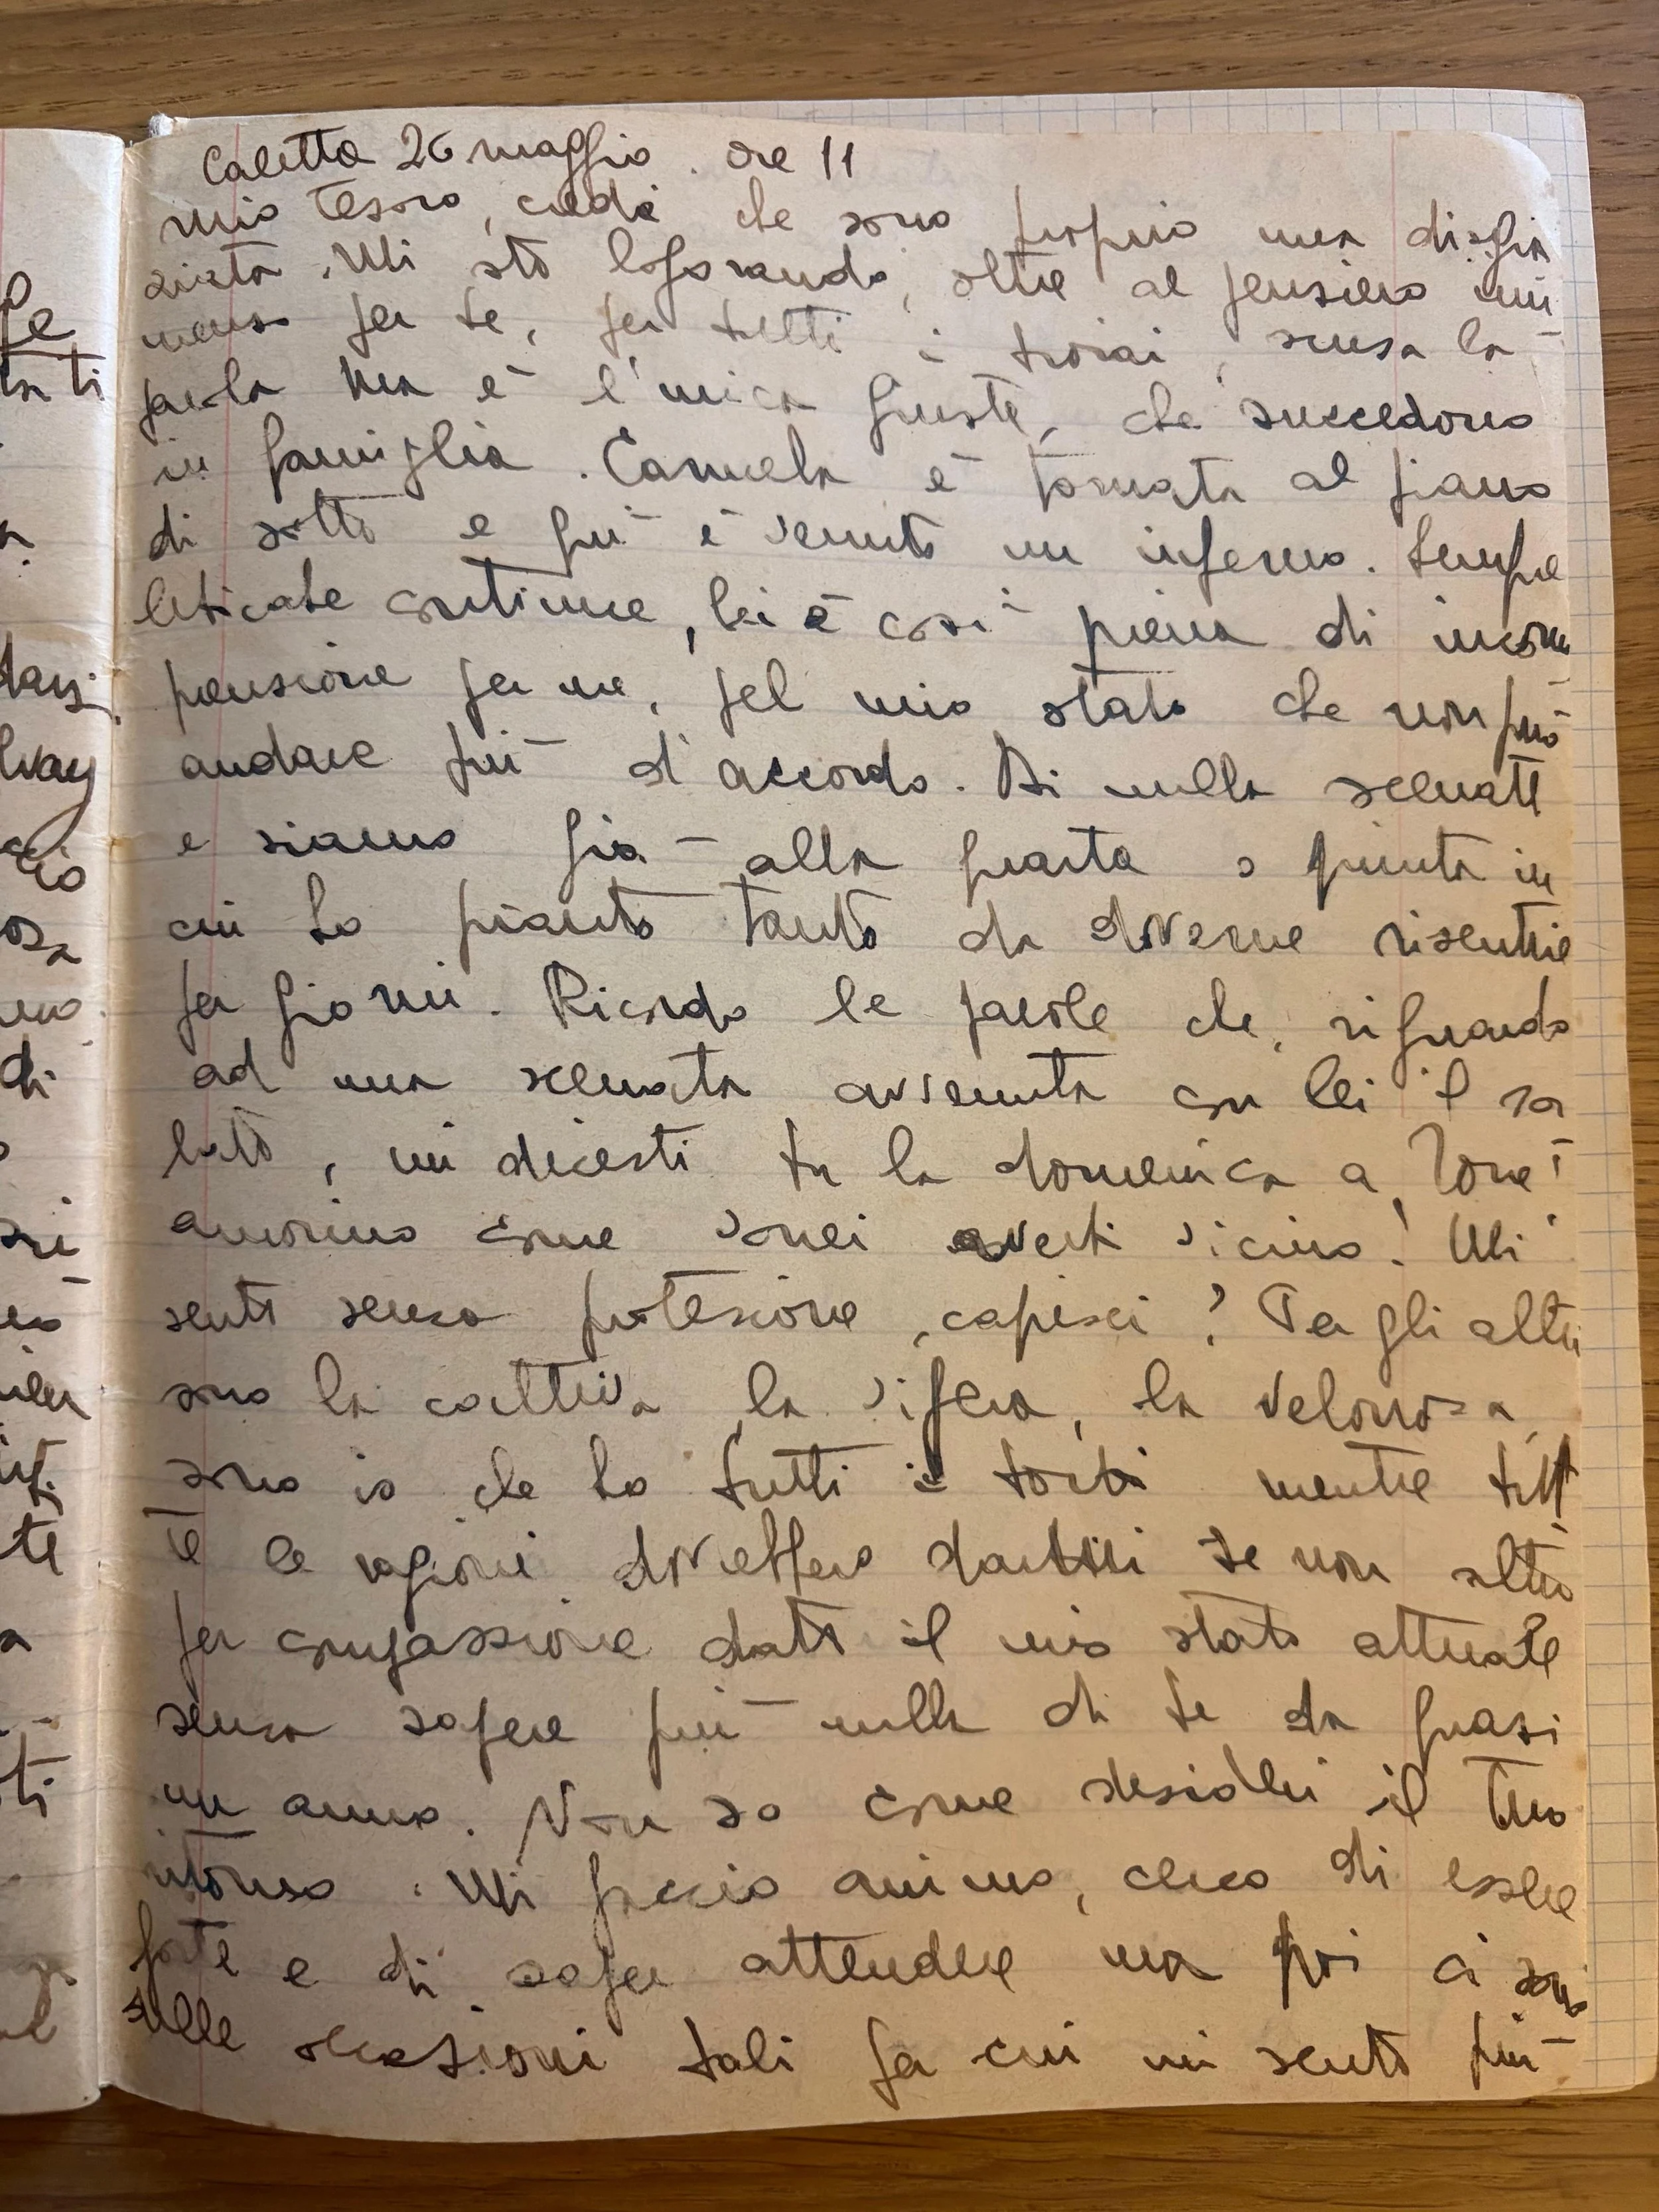 Caletta 26 maggio. ore 11
mio tesoro, credi che sono proprio una disgra
ziata. Mi sto logorando, oltre al pensiero im
menso per te, per tutti i troiai, scusa la
parola ma è l'unica giusta, che succedono
in famiglia. Carmela è tornata al piano
di sotto e qui è venuto un inferno. Sempre
leticate continue, lei è così piena di incom
prensione per me, pel mio stato che non può
andare più d'accordo. Di nulla scenate
e siamo già alla quarta o quinta in
cui ho pianto tanto da doverne risentire
per giorni. Ricordo le parole che, riguardo
ad una scenata avvenuta con lei il sa
bato, mi dicesti tu la domenica a
amorino come vorrei averti vicino! Mi
sento senza protezione, capisci? Per gli altri
sono la cattiva, la vipera, la velenosa,
sono io che ho tutti i torti mentre tut
te le ragioni dovrebbero darmi se non altro
per compassione dato il mio stato attuale
senza sapere più nulla di te da quasi
un anno. Non so come desideri il tuo
ritorno. Mi faccio animo, cerco di essere
forte e di saper attendere ma poi ci sono
delle occasioni tali per cui mi sento più
te
ti
di